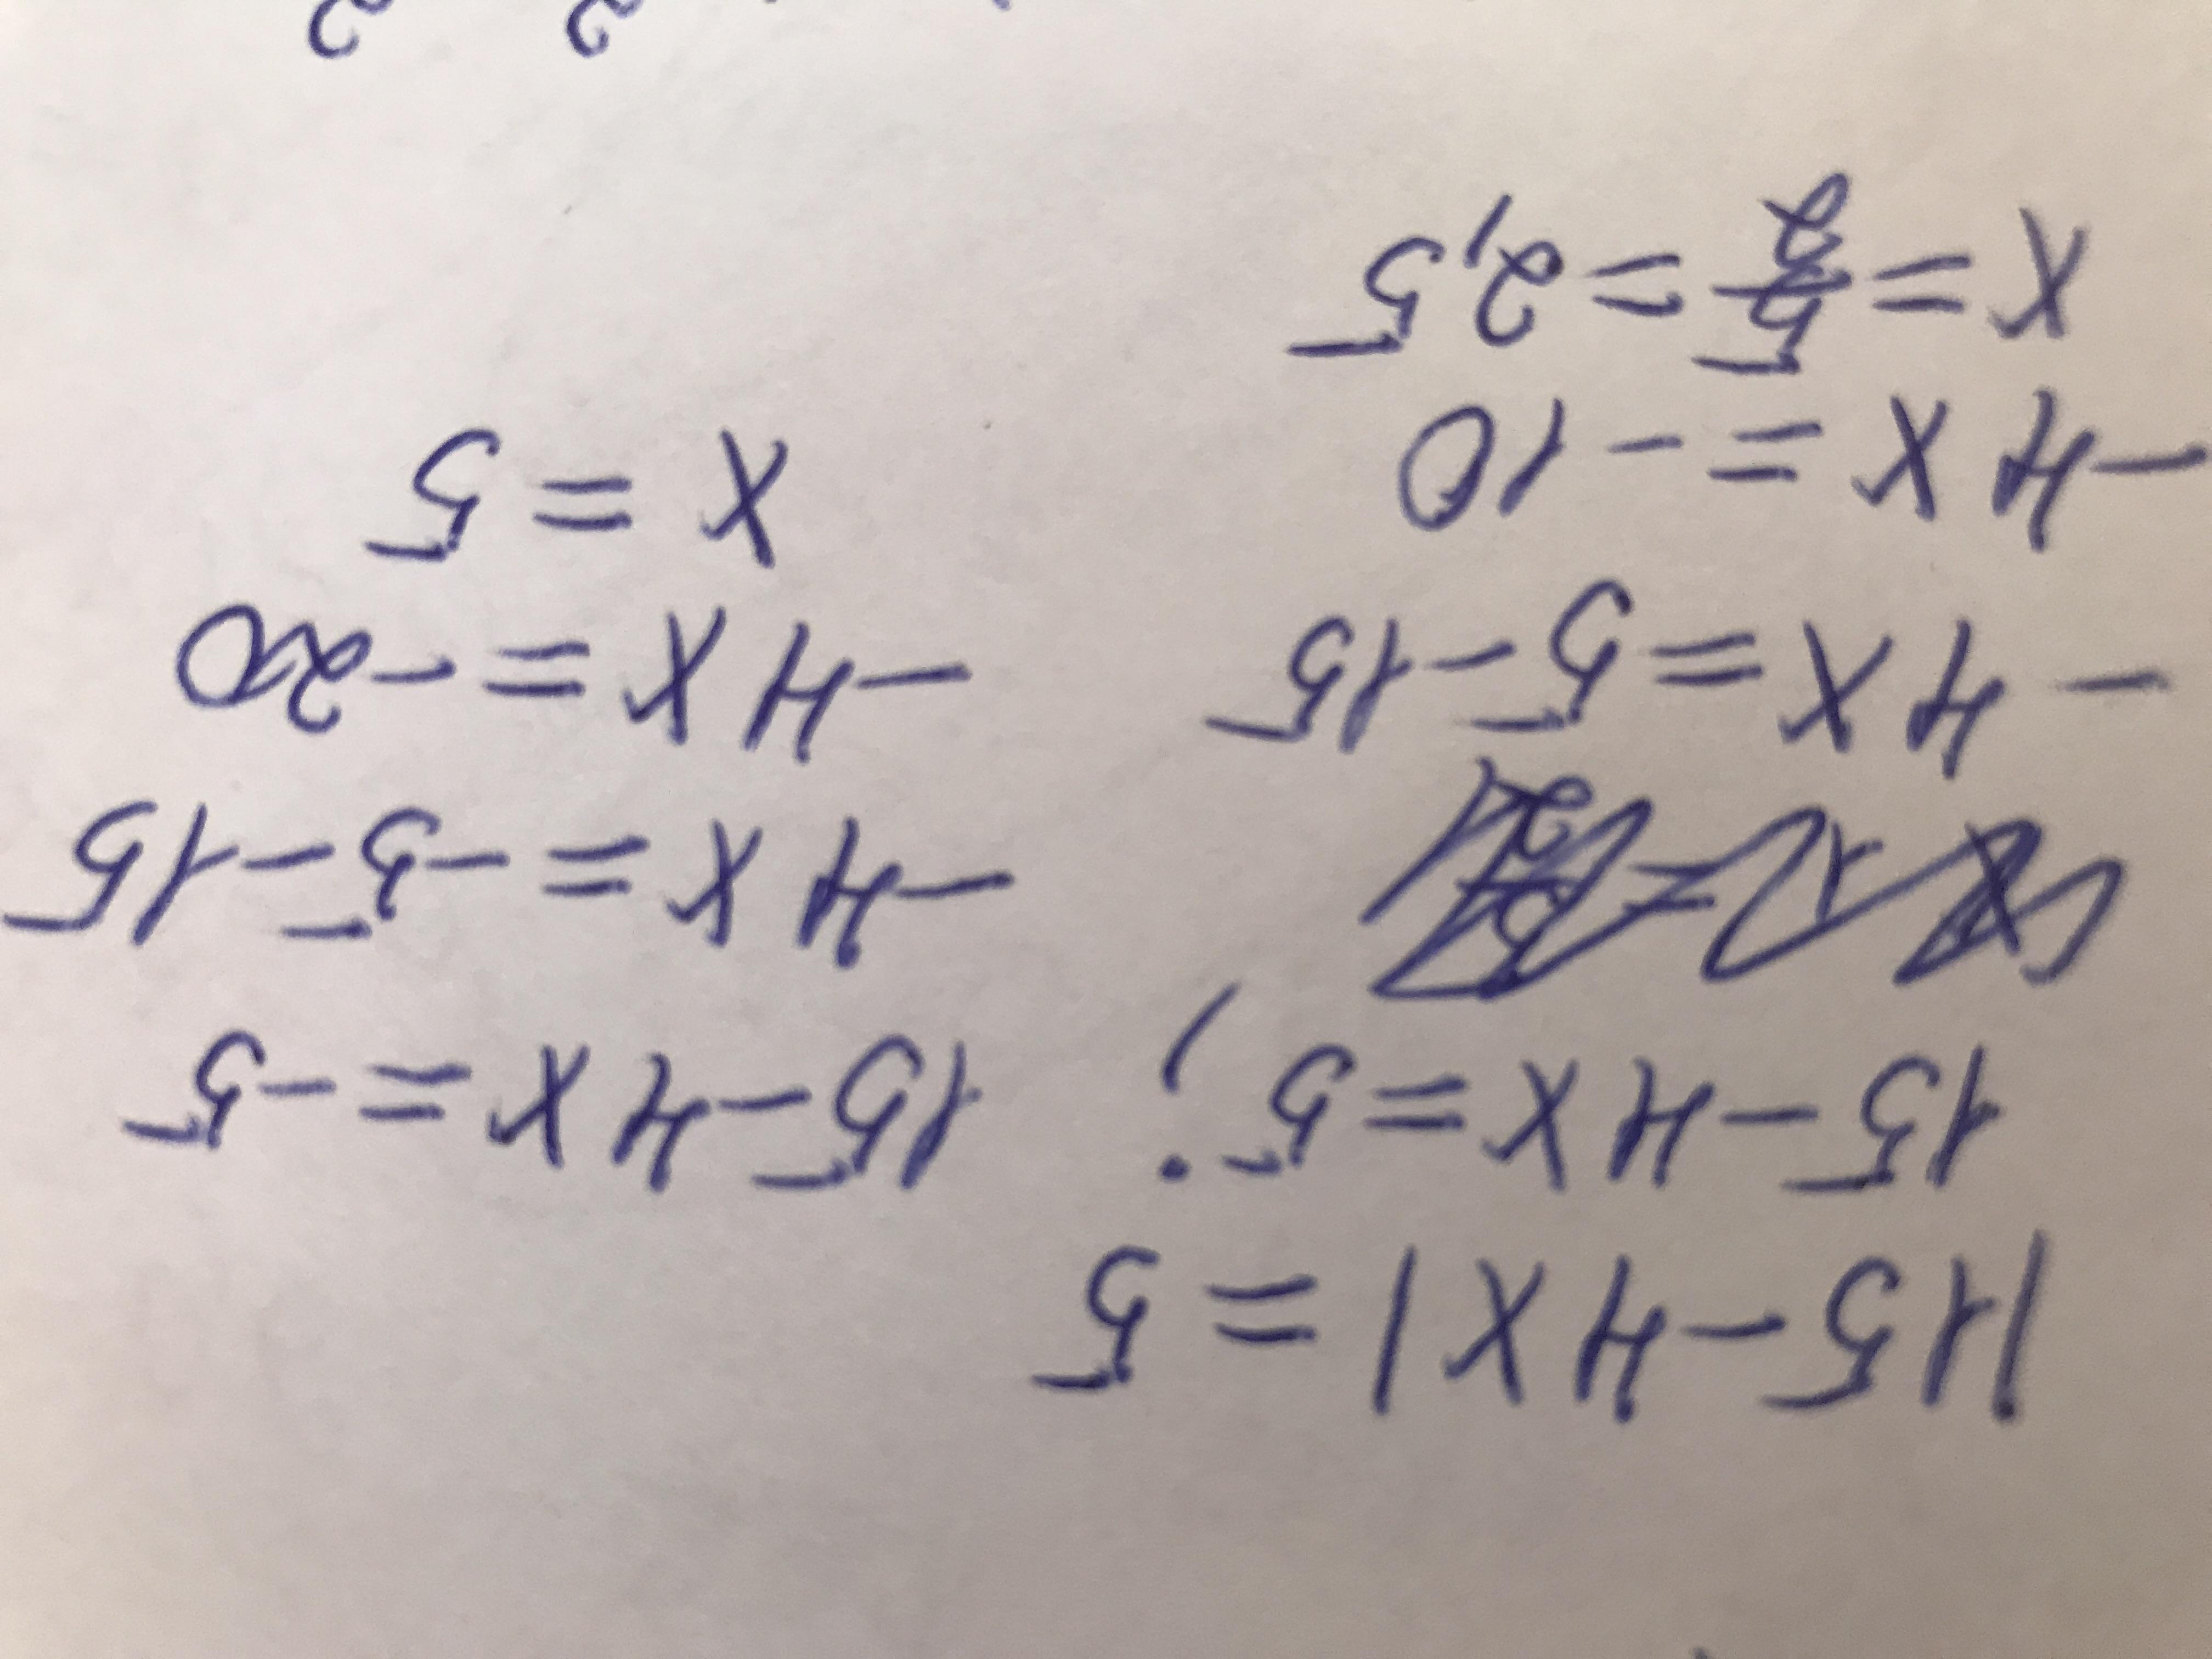 |15-4x|=5
15-4x=5; 15-4x=-5
-4x=5-15 -4x=-5-15
-4x=-10 -4x=-20
x=5/2=2,5 x=5